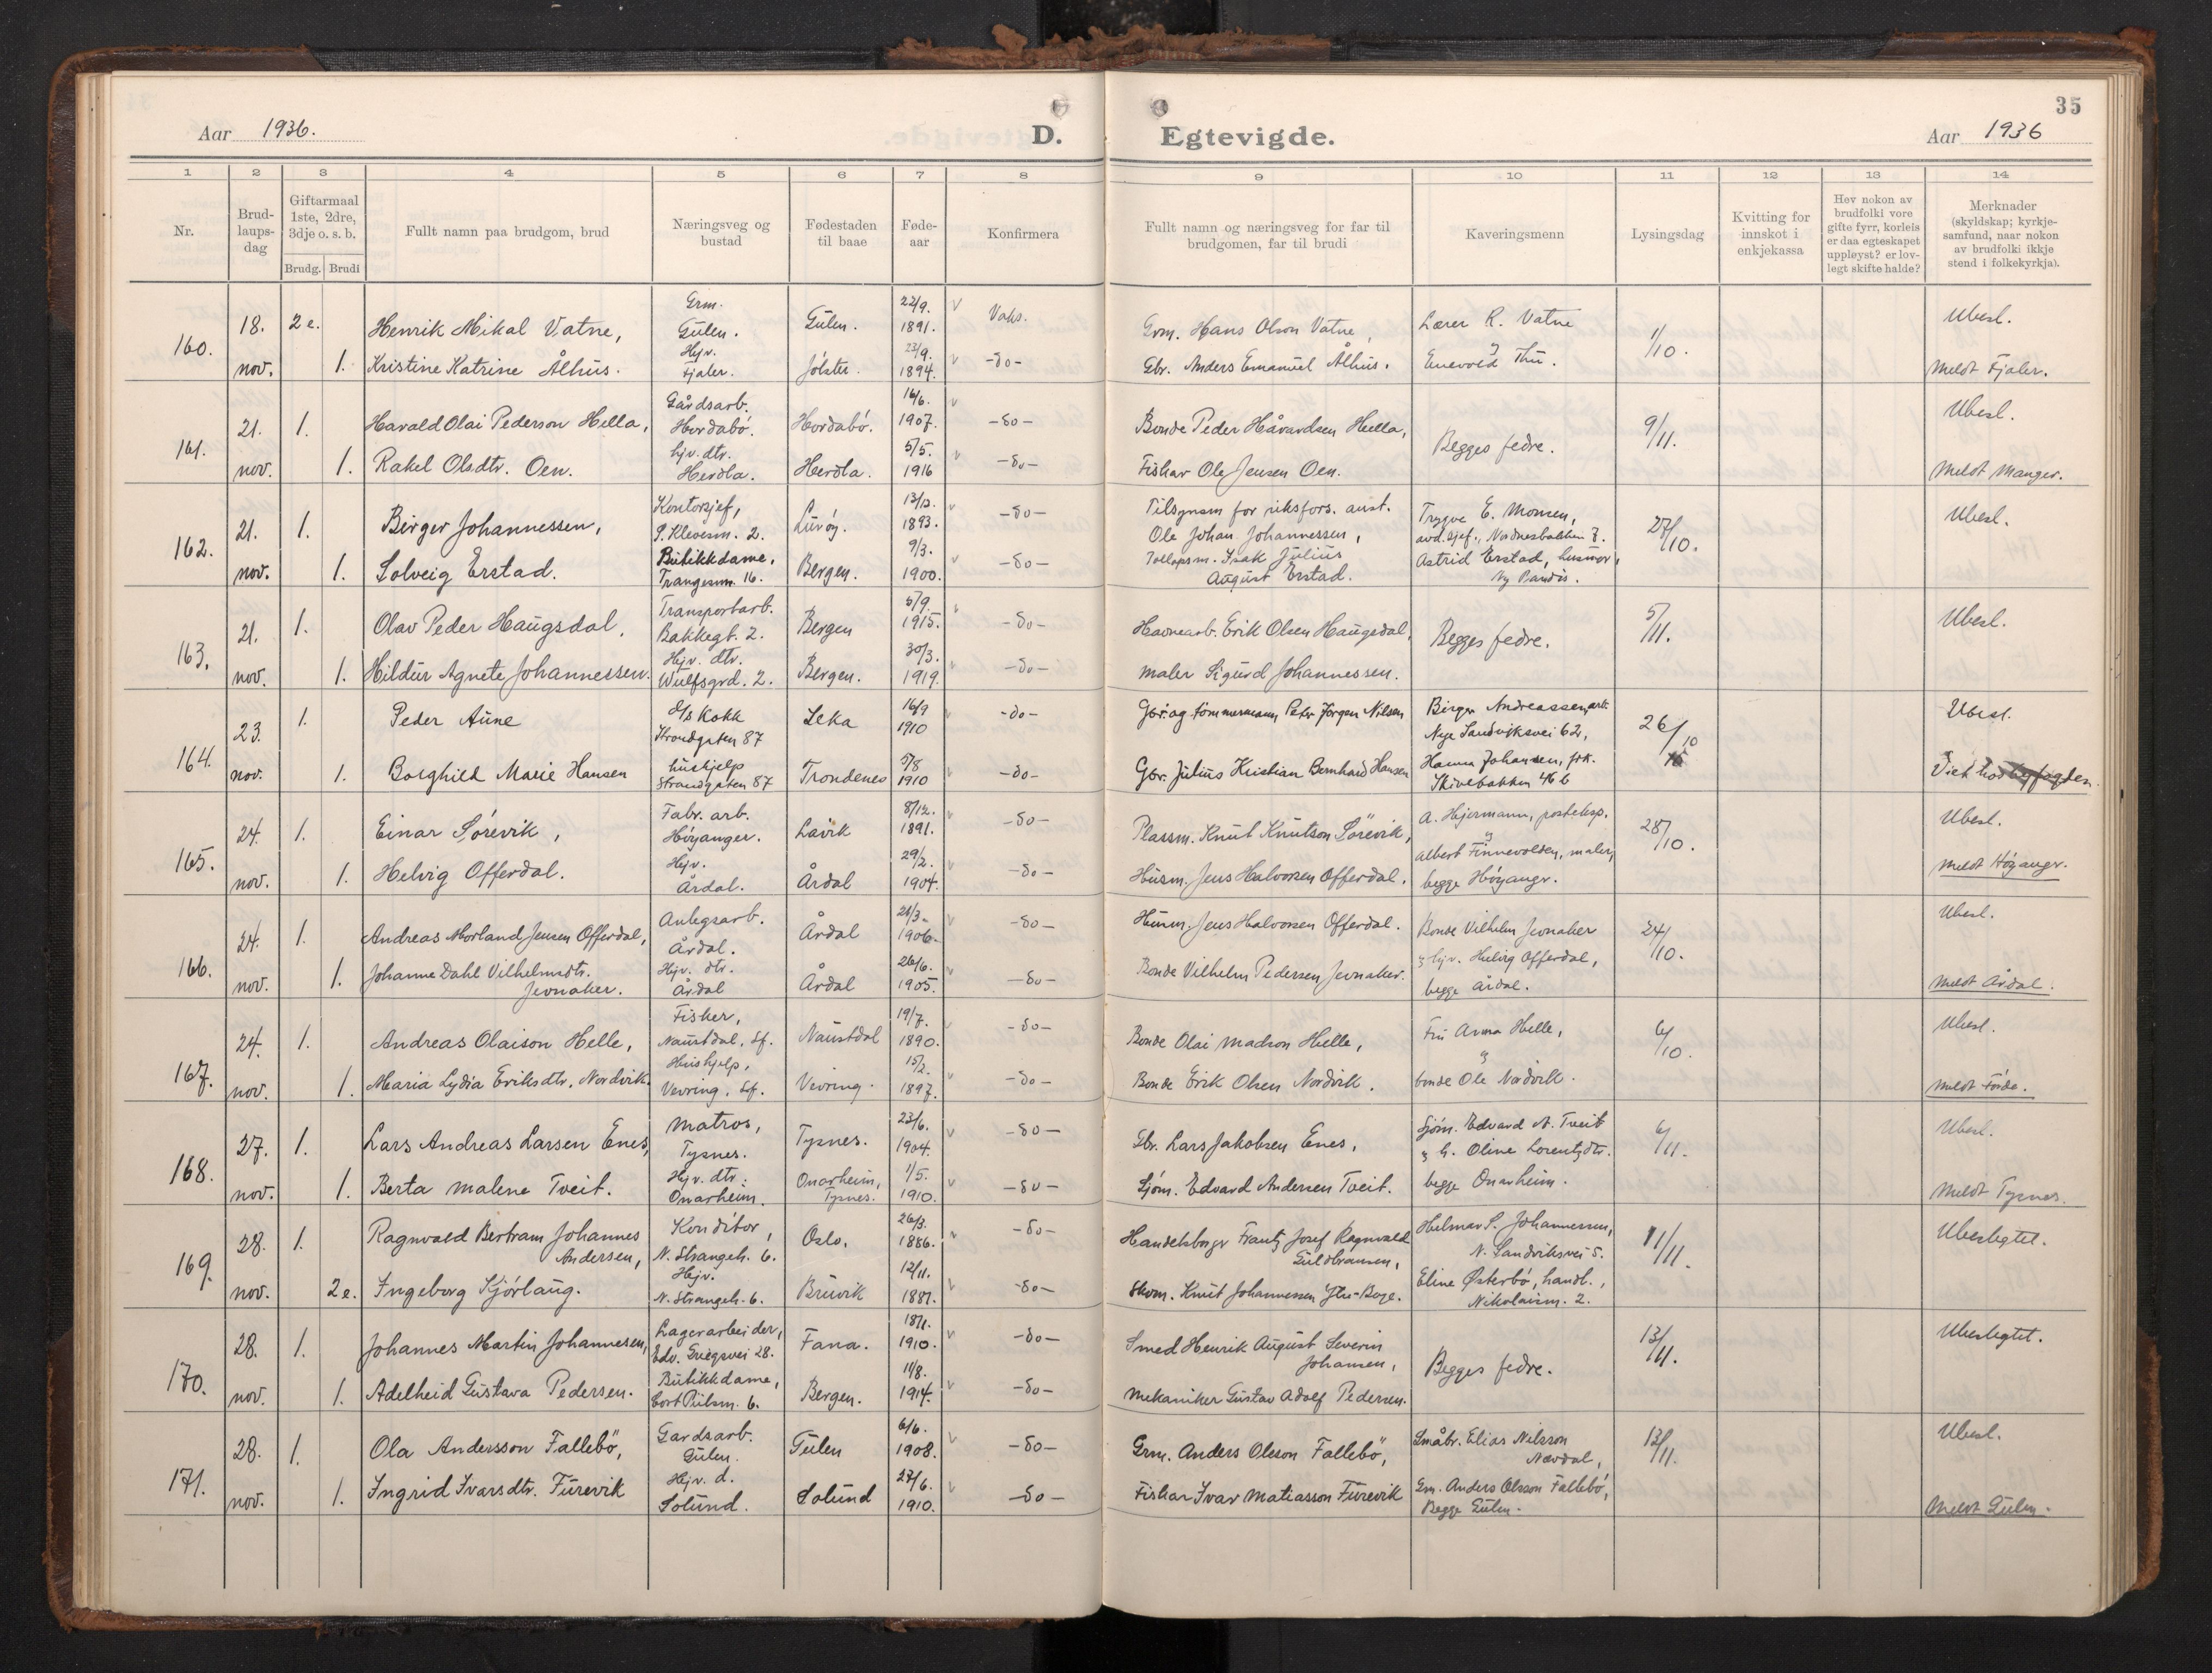 35
Aar 1936. D. Egtevigde. Aar 1936
1 2 3 4 5 6 7 8 9 10 11 12 13 14
Nr.
Brud-
laups-
dag
Giftarmaal
1ste, 2dre,
3dje o. s. b.
Brudg. Brudi
Fullt namn paa brudgom, brud
Næringsveg og
bustad
Fødestaden
til baae
Føde-
aar
Konfirmera
Fullt namn og næringsveg for far til
brudgomen, far til brudi
Kaveringsmenn
Lysingsdag
Kvitting for
innskot i
enkjekassa
Hev nokon av
brudfolki vore
gifte fyrr, korleis
er daa egteskapet
uppløyst? er lov-
legt skifte halde?
Merknader
(skyldskap; kyrkje-
samfund, naar nokon
av brudfolki ikkje
stend i folkekyrkja).
160.
18. 2 e. Henrik Mikal Vatne, Grm. Gulen. Gulen. 22/9. 1891. Vaks. Grm. Hans Olson Vatne, Lærer R. Vatne 1/10. Ubesl.
nov. 1. Kristine Katrine Ålhus. Hjv. Fjaler. Jølster. 23/9. 1894. -do- Gbr. Anders Emanuel Ålhus. Enevold Thu. Meldt Fjaler.
161.
21. 1. Harald Olai Pederson Hella, Gårdsarb. Hordabø. Hordabø. 16/6. 1907. -do- Bonde Peder Håvardsen Hella, Begges fedre. 9/11. Ubesl.
nov. 1. Rakel Olsdtr. Oen. hjv. dtr. Herdla. Herdla. 5/5. 1916 -do- Fiskar Ole Jensen Oen. Meldt Manger.
162.
21. 1. Birger Johannessen, Kontorsjef, P. Klevesm. 2. Lurøy. 1893. -do- Tilsynsm for riksfors. anst. Ole Johan Johannessen, Trygve E. Monsen, avd. sjef., Nordnesbakken 7. 27/10. Ubesl.
nov. 1. Solveig Erstad. Butikkdame, Trangesm. 16. Bergen. 9/3. 1900. -do- Isak Julius August Erstad. Astrid Erstad, husmor,
163.
21. 1. Olav Peder Haugsdal, Transportarb. Bakkegt. 2. Bergen 5/9. 1915. -do- Havnearb. Erik Olsen Haugsdal, Begges fedre. 5/11. Ubesl.
nov. 1. Hildur Agnete Johannessen. Hjv. dtr. Wulfsgrd. 2. Bergen. 30/3. 1919. -do- Maler Sigurd Johannessen.
164.
23. 1. Peder Aune d/s Kokk Strandgaten 87 Leka 16/9 1910 -do- Gbr. og tømmermann Peter Jørgen Nilsen Birger Andreassen, arb. Nye Sandviksvei 62, 26/10 Ubesl.
nov. 1. Borghild Marie Hansen hushjelp Strandgaten 87 Trondenes 1910 -do- Gbr. Julius Kristian Bernhard Hansen Hanna Johansen, frk. Skivebakken 46 b Viet hos byfogden
165.
24. 1. Einar Sørevik, Fabr. arb. Høyanger. Lavik 8/12. 1891. -do- Plassm. Knut Knutson Sörevik, A. Hjermann, posteksp. 28/10. Ubesl.
nov. 1. Helvig Offerdal. Hjv. Årdal. Årdal 29/2. 1904. -do- Husm. Jens Halvorsen Offerdal. Albert Finnevolden, maler, begge Høyangr. Meldt Høyangr.
166.
24. 1. Andreas Morland Jensen Offerdal, Anlegsarb. Årdal. Årdal 1906. -do- Husm. Jens Halvorsen Offerdal. Bonde Vilhelm Jevnaker 24/10. Ubesl.
nov. 1. Johanne Dahl Vilhelmsdtr. Jevnaker. Hjv. dtr. Årdal Årdal 26/6. 1905. -do- Bonde Vilhelm Pedersen Jevnaker. hjv. Helvig Offerdal, begge Årdal. Meldt Årdal.
167.
24. 1. Andreas Olaison Helle, Fisker, Naustdal, Sf. Naustdal 19/7. 1890. -do- Bonde Olai Madson Helle, Fru Anna Helle, 6/10. Ubesl.
nov. 1. Maria Lydia Eriksdtr. Nordvik. Hushjelp, Vevring, Sf. Vevring. 15/2. 1897. -do- Bonde Erik Olsen Nordvik. bonde Ole Nordvik. Meldt Førde.
168.
27. 1. Lars Andreas Larsen Enes, Matros, Tysnes. Tysnes. 23/6. 1904. -do- Gbr. Lars Jakobsen Enes, Sjøm. Edvard A. Tveit 6/11. Ubesl.
nov. 1. Berta Malene Tveit. Hjv. dtr. Onarheim. Onarheim, Tysnes. 1/5. 1910. -do- Sjøm. Edvard Andersen Tveit. h. Oline Lorentsdtr. begge Onarheim. Meldt Tysnes.
169.
28. 1. Ragnvald Bertram Johannes Andersen, Konditor, N. Strangeh. 6. Oslo. 26/3. 1886. -do- Handelsborgr Frantz Josef Ragnvald Guldbransen, Helmar S. Johannessen, N. Sandviksvei 5. 11/11. Ubeslegtet.
nov. 2 e. Ingeborg Kjørlaug. Hjv. N. Strangeh. 6. Bruvik 12/11. 1887. -do- Skom. Knut Johannessen Ytre-Boge. Eline Østerbø, handl., Nikolaism. 2.
170.
28. 1. Johannes Martin Johannesen, Lagerarbeider, Edv. Griegsvei 28. Fana. 1910. -do- Smed Henrik August Severin Johansen, Begges fedre. 13/11. Ubeslegtet.
nov. 1. Adelheid Gustava Pedersen. Butikkdame, Cort Piilsm. 6. Bergen. 11/8. 1914. -do- Mekaniker Gustav Adolf Pedersen.
171.
28. 1. Ola Andersson Fallebö, Gardsarb. Gulen. Gulen 6/6. 1908. -do- Grm. Anders Oleson Fallebö, Småbr. Elias Nilsson Nævdal, 13/11. Ubesl.
nov. 1. Ingrid Ivarsdtr. Furevik Hjv. d. Solund. Solund 27/6. 1910. -do- Fiskar Ivar Matiasson Furevik Gm. Anders Olsson Fallebö, Begge Gulen. Meldt Gulen.